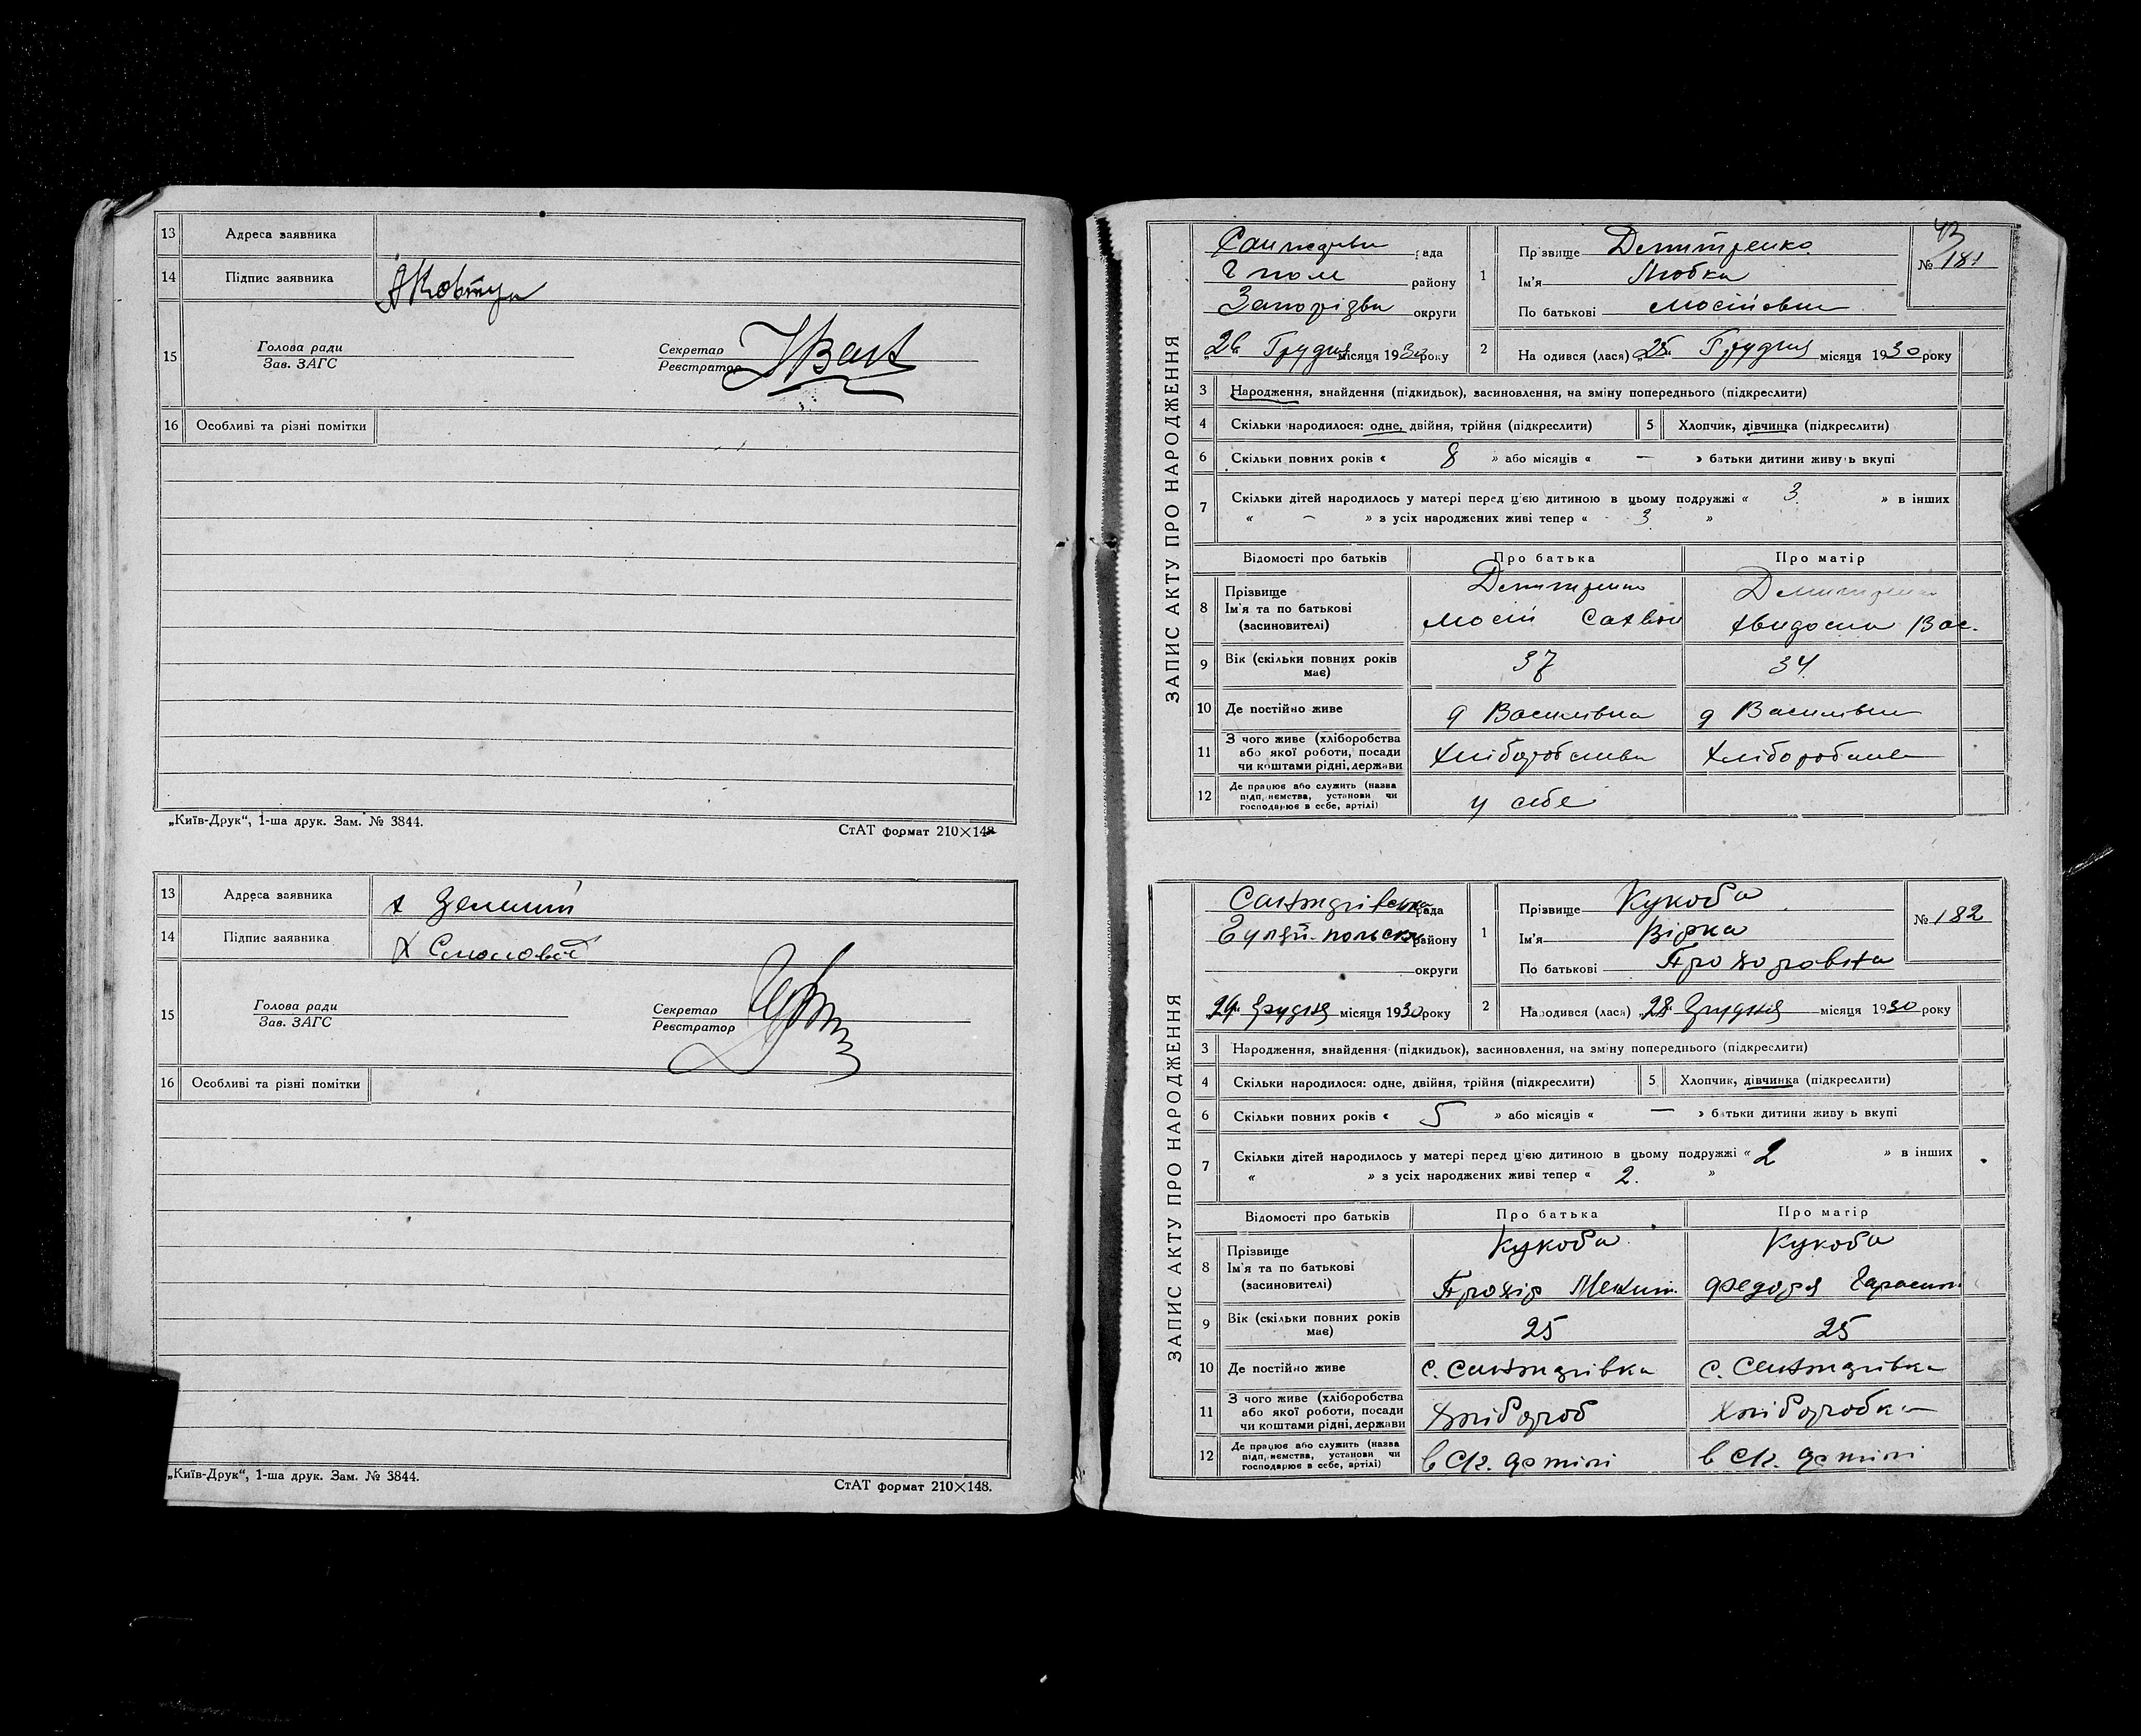 13 Адреса заявника
14 Підпис заявника АКовтун
15 Голова ради
Зав. ЗАГС
Секретар
Реєстратор
16 Особливі та різні помітки
„Київ-Друк“, 1-ша друк. Зам. № 3844.
СтАТ формат 210×148
13 Адреса заявника
14 Підпис заявника
15 Голова ради
Зав. ЗАГС
Секретар
Реєстратор
16 Особливі та різні помітки
„Київ-Друк“, 1-ша друк. Зам. № 3844.
СтАТ формат 210×148.
ЗАПИС АКТУ ПРО НАРОДЖЕННЯ
рада
Г пол району
округи
26 Грудня місяця 1930 року
1 Прізвище Демитренко
Ім'я Любка
По батькові Мосіївна
43
№ 181
2 Народився (лася) 25 Грудня місяця 1930 року
3 Народження, знайдення (підкидьок), засиновлення, на зміну попереднього (підкреслити)
4 Скільки народилося: одне, двійня, трійня (підкреслити)
5 Хлопчик, дівчинка (підкреслити)
6 Скільки повних років « 8 » або місяців « — » батьки дитини живуть вкупі
7 Скільки дітей народилось у матері перед ц'єю дитиною в цьому подружжі « 3 » в інших
« – » з усіх народжених живі тепер « 3 »
Відомості про батьків Про батька Про матір
8 Прізвище Демитренко Демитренко
Ім'я та по батькові Мосій
(засиновителі)
9 Вік (скільки повних років має) 37 34
10 Де постійно живе д Василівка д Василівка
11 З чого живе (хліборобства
або якої роботи, посади
чи коштами рідні, держави
12 Де працює або служить (назва
підприємства, установи чи
господарює в себе, артілі) у себе
ЗАПИС АКТУ ПРО НАРОДЖЕННЯ
рада
Гуляй-польськ району
округи
29 грудня місяця 1930 року
1 Прізвище Кукоба
Ім'я Вірка
По батькові Прохоровна
№ 182
2 Народився (лася) 28 грудня місяця 1930 року
3 Народження, знайдення (підкидьок), засиновлення, на зміну попереднього (підкреслити)
4 Скільки народилося: одне, двійня, трійня (підкреслити)
5 Хлопчик, дівчинка (підкреслити)
6 Скільки повних років « 5 » або місяців « — » батьки дитини живуть вкупі
7 Скільки дітей народилось у матері перед ц'єю дитиною в цьому подружжі « 2 » в інших
« » з усіх народжених живі тепер « 2. »
Відомості про батьків Про батька Про матір
8 Прізвище Кукоба Кукоба
Ім'я та по батькові Прохір Федора Гарасим
(засиновителі)
9 Вік (скільки повних років має) 25 25
10 Де постійно живе с. с.
11 З чого живе (хліборобства
або якої роботи, посади
чи коштами рідні, держави хлібороб хліборобка
12 Де працює або служить (назва
підприємства, установи чи
господарює в себе, артілі) в С/г. артілі в С/г. артілі